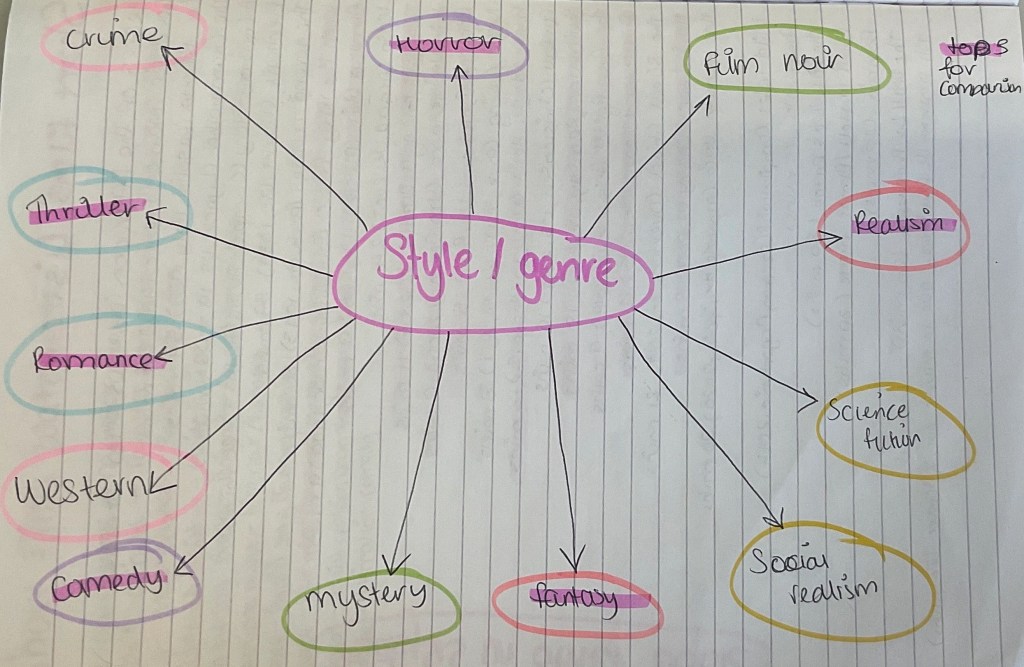 Crime
Horror
film noir
tops
for
comparison
Thriller
Realism
Style / genre
Romance
Science
fiction
Western
Comedy
mystery
fantasy
Social
realism